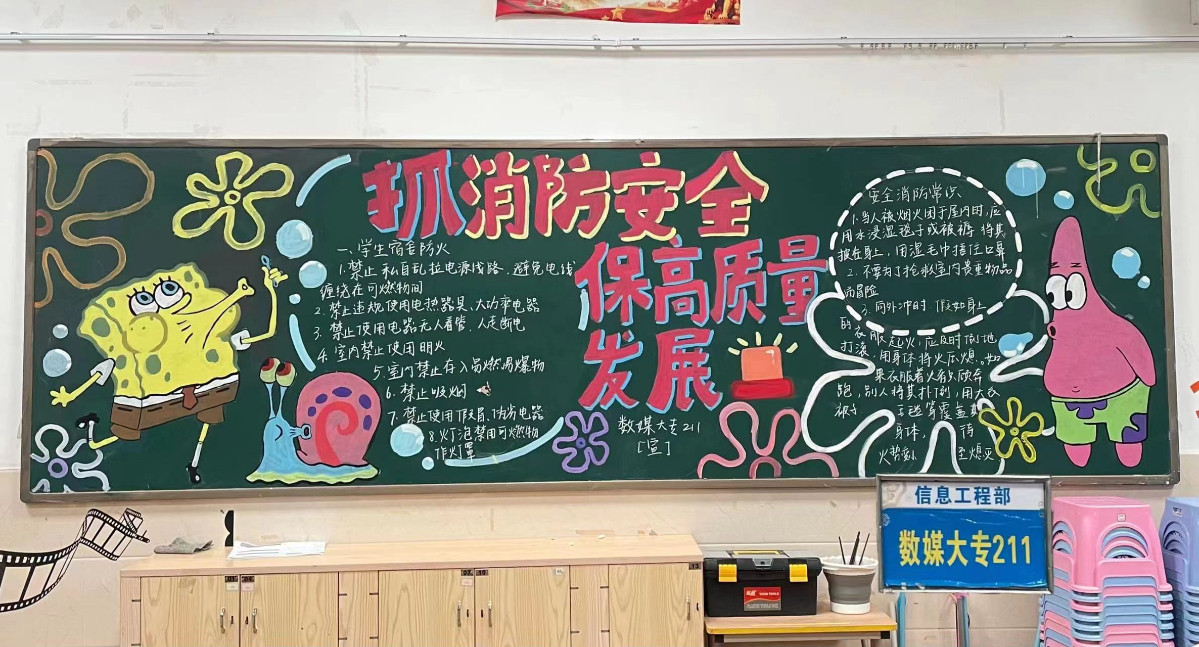 抓消防安全
保高质量
发展
一、学生宿舍防火
1.禁止私自乱拉电源线路、避免电线
缠绕在可燃物间
2.禁止违规使用电热器具、大功率电器
3.禁止使用电器无人看管、人走断电
4.室内禁止使用明火
5.室内禁止存入易燃易爆物
6.禁止吸烟
7.禁止使用伪劣电器
8.灯泡禁用可燃物
作灯罩
数媒大专211
[宣]
安全消防常识
1.当人被烟火困于屋内时,应
用水浸湿毯子或被褥 将其
披在身上,用湿毛巾捂住口鼻
2.不要为了抢救室内贵重物品
而冒险
3.向外冲时 假如身上
的衣服起火,应及时倒地
打滚,用身体将火压熄,如
果衣服着火者只顾奔
跑,别人将其扑倒,用大衣
被子 覆盖其
身体, 待
火势 至熄灭
信息工程部
数媒大专211